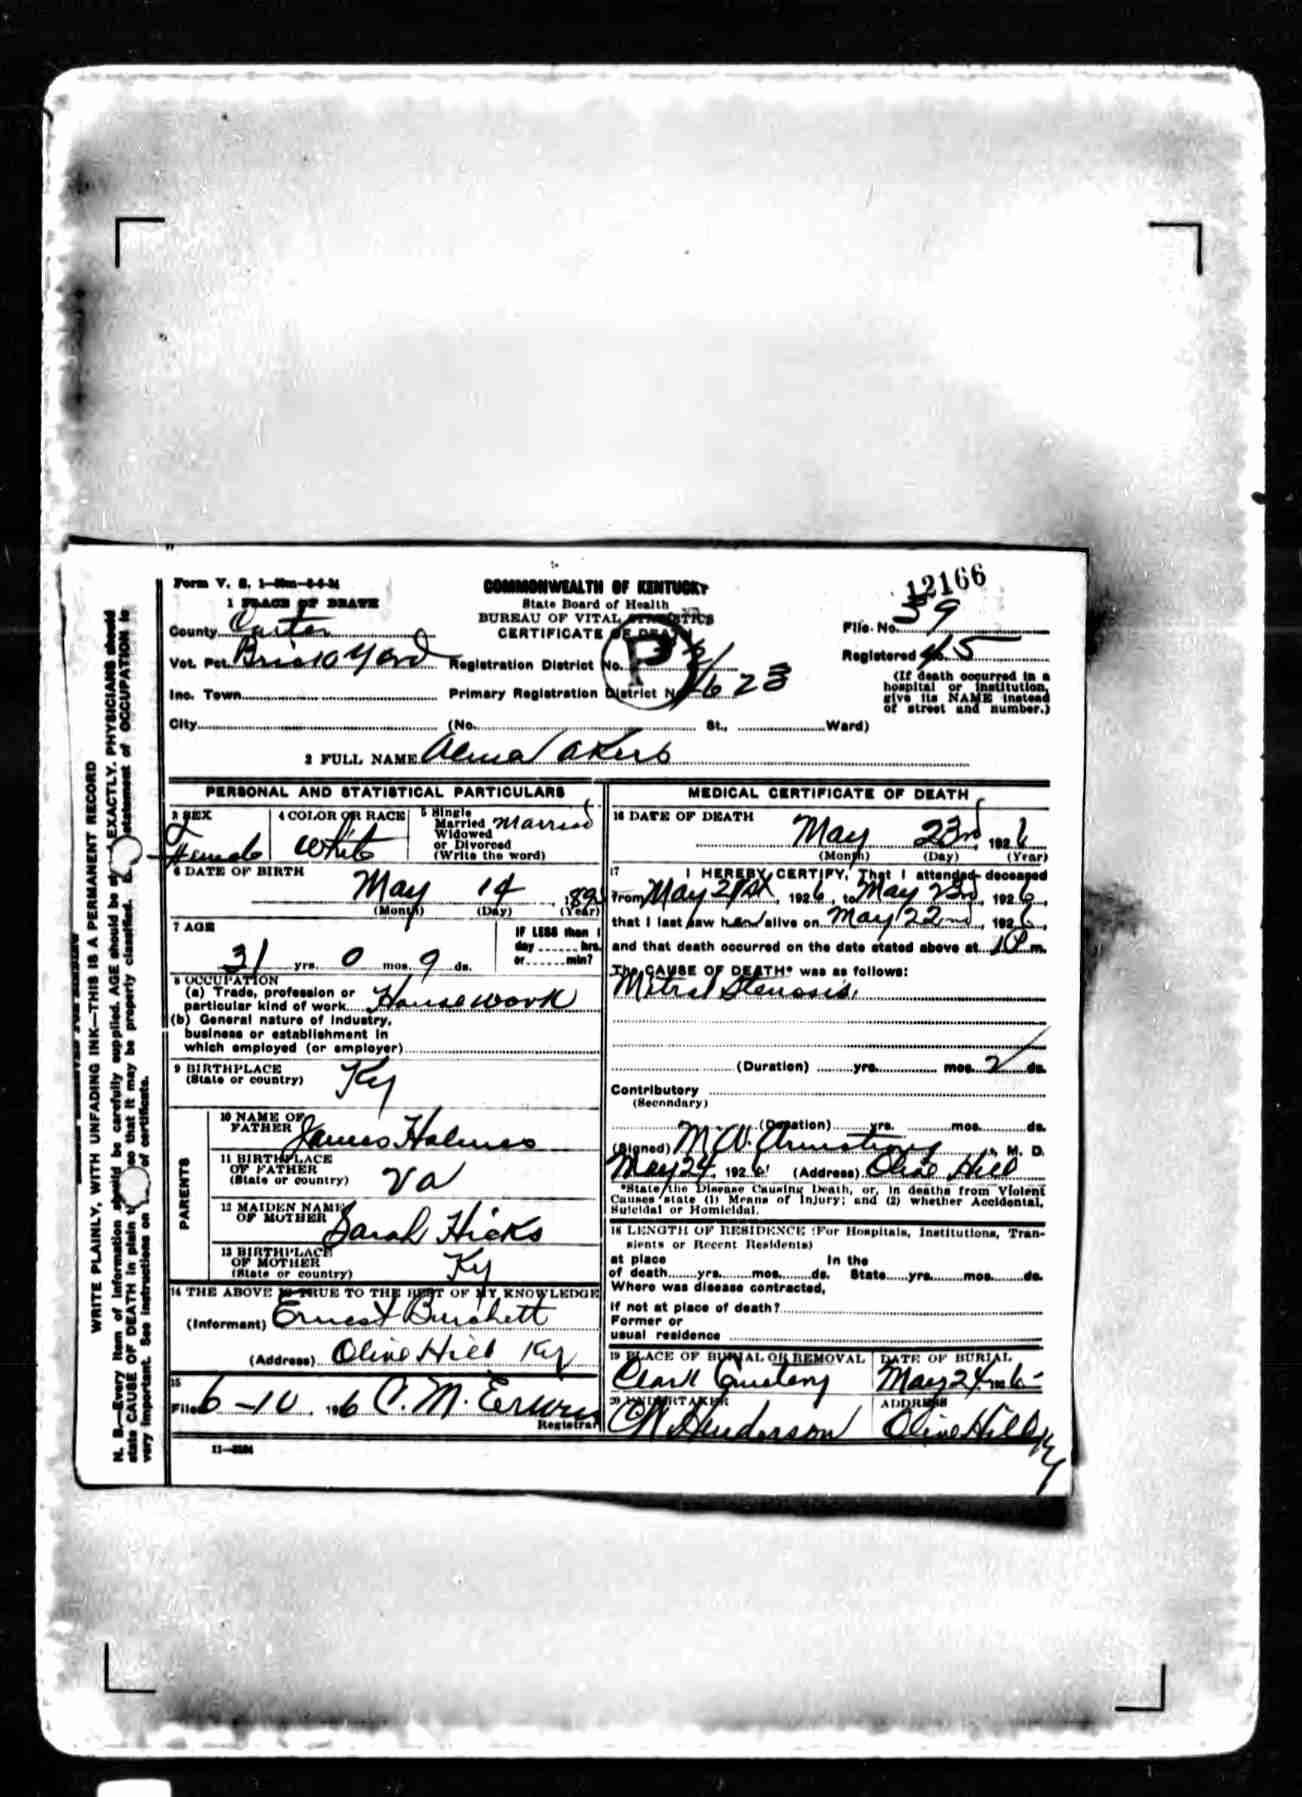 Form V. S. 1
COMMONWEALTH OF KENTUCKY
12166
1 PLACE OF DEATH
State Board of Health
BUREAU OF VITAL STATISTICS
CERTIFICATE OF DEATH
P
County Carter
File No. 59
Vot. Pct. Brick Yard Registration District No.
Registered No. 45
Inc. Town Primary Registration District No. 623
(If death occurred in a hospital or institution, give its NAME instead of street and number.)
City (No. St., Ward)
2 FULL NAME Alma Akers
PERSONAL AND STATISTICAL PARTICULARS
3 SEX Female
4 COLOR OR RACE White
5 Single Married Widowed or Divorced (Write the word) Married
6 DATE OF BIRTH
May 14 , 189
(Month) (Day) (Year)
7 AGE
31 yrs. 0 mos. 9 ds.
IF LESS than 1 day hrs. or min?
8 OCCUPATION
(a) Trade, profession or particular kind of work Housework
(b) General nature of Industry, business or establishment in which employed (or employer)
9 BIRTHPLACE (State or country) Ky
PARENTS
10 NAME OF FATHER James Holmes
11 BIRTHPLACE OF FATHER (State or country) Va
12 MAIDEN NAME OF MOTHER Sarah Hicks
13 BIRTHPLACE OF MOTHER (State or country) Ky
14 THE ABOVE IS TRUE TO THE BEST OF MY KNOWLEDGE
(Informant) Ernest Burchett
(Address) Olive Hill Ky
15
Filed 6-10 1926 C. M. Erwin
Registrar
11-3184
MEDICAL CERTIFICATE OF DEATH
16 DATE OF DEATH
May 23rd, 1926
(Month) (Day) (Year)
17 I HEREBY CERTIFY, That I attended deceased
from May 21st, 1926, to May 23rd, 1926,
that I last saw her alive on May 22nd, 1926,
and that death occurred on the date stated above at 1 P m.
The CAUSE OF DEATH* was as follows:
Mitral Stenosis
(Duration) yrs. mos. 2 ds.
Contributory
(Secondary)
(Duration) yrs. mos. ds.
(Signed) M. W. Armstrong, M. D.
May 24, 1926 (Address) Olive Hill
*State the Disease Causing Death, or, in deaths from Violent Causes state (1) Means of Injury; and (2) whether Accidental, Suicidal or Homicidal.
18 LENGTH OF RESIDENCE (For Hospitals, Institutions, Transients or Recent Residents)
at place of death yrs. mos. ds. In the State yrs. mos. ds.
Where was disease contracted,
if not at place of death?
Former or usual residence
19 PLACE OF BURIAL OR REMOVAL
Clark Cemetery
DATE OF BURIAL
May 24 1926
20 UNDERTAKER
C W Henderson
ADDRESS
Olive Hill Ky
WRITE PLAINLY, WITH UNFADING INK—THIS IS A PERMANENT RECORD
N. B.—Every item of information should be carefully supplied. AGE should be stated EXACTLY. PHYSICIANS should
state CAUSE OF DEATH in plain terms, so that it may be properly classified. Exact statement of OCCUPATION is
very important. See instructions on back of certificate.